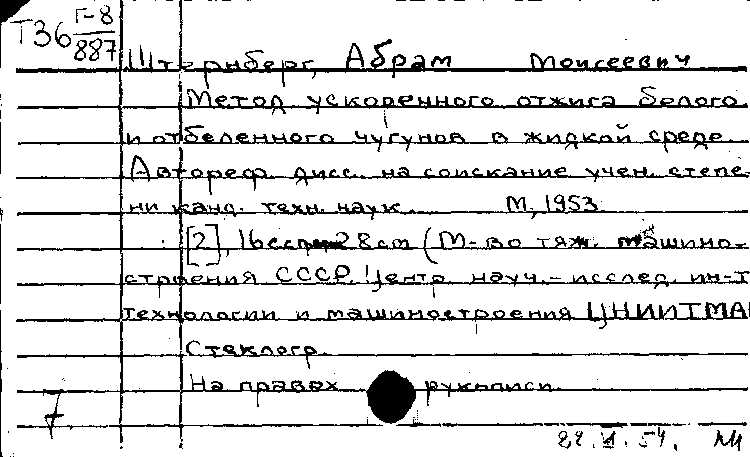 Т36 Г-8
887
Штернберг, Абрам Моисеевич
Метод ускоренного отжига белого
и отбеленного чугунов в жидкой среде.
Автореф. дисс. на соискание учен. степе-
ни канд. техн. наук. М., 1953.
[2], 16 с. 28 см (М-во тяж. машино-
строения СССР. Центр. науч.-исслед. ин-т
технологии и машиностроения ЦНИИТМА
Стеклогр.
На правах рукописи.
7
54.